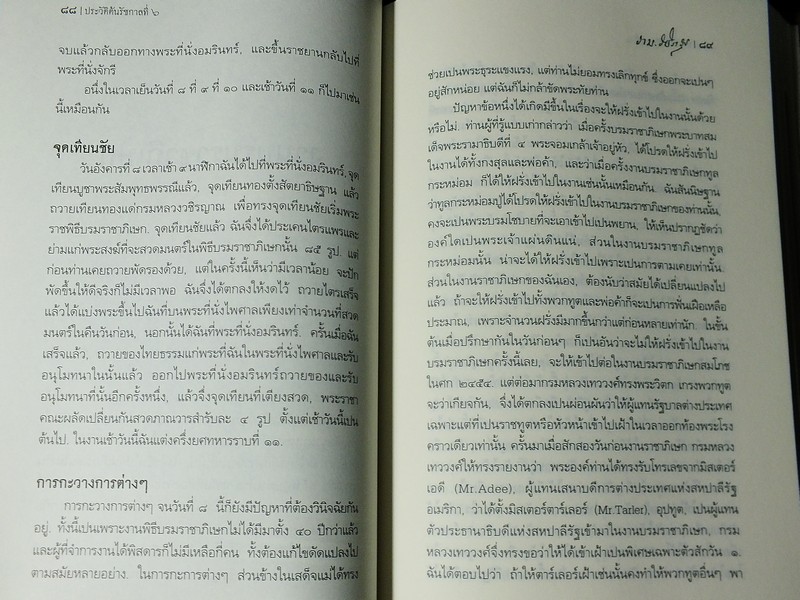 ๘๘ | ประวัติต้นรัชกาลที่ ๖
จบแล้วกลับออกทางพระที่นั่งอมรินทร์, และขึ้นราชยานกลับไปที่
พระที่นั่งจักรี
อนึ่งในเวลาเย็นวันที่ ๘ ที่ ๙ ที่ ๑๐ และเช้าวันที่ ๑๑ ก็ไปมาเช่น
นี้เหมือนกัน
จุดเทียนชัย
วันอังคารที่ ๘ เวลาเช้า ๙ นาฬิกาฉันได้ไปที่พระที่นั่งอมรินทร์, จุด
เทียนบูชาพระสัมพุทธพรรณีแล้ว, จุดเทียนทองตั้งสัตยาธิษฐาน แล้ว
ถวายเทียนทองแด่กรมหลวงวชิรญาณ เพื่อทรงจุดเทียนชัยเริ่มพระ
ราชพิธีบรมราชาภิเษก. จุดเทียนชัยแล้ว ฉันจึ่งได้ประเคนไตรแพรและ
ย่ามแก่พระสงฆ์ที่จะสวดมนตร์ในพิธีบรมราชาภิเษกนั้น ๘๕ รูป. แต่
ก่อนท่านเคยถวายพัดรองด้วย, แต่ในครั้งนี้เห็นว่ามีเวลาน้อย จะปัก
พัดขึ้นให้ดีจริงก็ไม่มีเวลาพอ ฉันจึ่งได้ตกลงให้งดไว้ ถวายไตรเสร็จ
แล้วได้แบ่งพระขึ้นไปฉันที่บนพระที่นั่งไพศาลเพียงเท่าจำนวนที่สวด
มนตร์ในคืนวันก่อน, นอกนั้นได้ฉันที่พระที่นั่งอมรินทร์. ครั้นเมื่อฉัน
เสร็จแล้ว, ถวายของไทยธรรมแก่พระที่ฉันในพระที่นั่งไพศาลและรับ
อนุโมทนาในนั้นแล้ว ออกไปพระที่นั่งอมรินทร์ถวายของและรับ
อนุโมทนาที่นั้นอีกครั้งหนึ่ง, แล้วจึ่งจุดเทียนที่เตียงสวด, พระราชา
คณะผลัดเปลี่ยนกันสวดภาณวารสำรับละ ๔ รูป ตั้งแต่เช้าวันนี้เปน
ต้นไป. ในงานเช้าวันนี้ฉันแต่งครึ่งยศทหารราบที่ ๑๑.
การกะวางการต่างๆ
การกะวางการต่างๆ จนวันที่ ๘ นี้ก็ยังมีปัญหาที่ต้องวินิจฉัยกัน
อยู่. ทั้งนี้เปนเพราะงานพิธีบรมราชาภิเษกไม่ได้มีมาตั้ง ๔๐ ปีกว่าแล้ว
และผู้ที่จำการงานได้พิสดารก็ไม่มีเหลือกี่คน ทั้งต้องแก้ไขดัดแปลงไป
ตามสมัยหลายอย่าง. ในการกะการต่างๆ ส่วนข้างในเสด็จแม่ได้ทรง
| ๘๙
ช่วยเปนพระธุระแขงแรง, แต่ท่านไม่ยอมทรงเลิกทุกข์ ซึ่งออกจะเปนๆ
อยู่สักหน่อย แต่ฉันก็ไม่กล้าขัดพระทัยท่าน
ปัญหาข้อหนึ่งได้เกิดมีขึ้นในเรื่องจะให้ฝรั่งเข้าไปในงานนั้นด้วย
หรือไม่. ท่านผู้ที่รู้แบบเก่ากล่าวว่า เมื่อครั้งบรมราชาภิเษกพระบาทสม
เด็จพระรามาธิบดีที่ ๔ พระจอมเกล้าเจ้าอยู่หัว, ได้โปรดให้ฝรั่งเข้าไป
ในงานได้ทั้งกงสุลและพ่อค้า, และว่าเมื่อครั้งงานบรมราชาภิเษกทูล
กระหม่อม ก็ได้ให้ฝรั่งเข้าไปในงานเช่นนั้นเหมือนกัน ฉันสันนิษฐาน
ว่าทูลกระหม่อมปู่ได้โปรดให้ฝรั่งเข้าไปในงานบรมราชาภิเษกของท่านนั้น,
คงจะเปนพระบรมโชบายที่จะเอาเข้าไปเปนพยาน, ให้เห็นปรากฏชัดว่า
องค์ใดเปนพระเจ้าแผ่นดินแน่, ส่วนในงานบรมราชาภิเษกทูล
กระหม่อมนั้น น่าจะได้ให้ฝรั่งเข้าไปเพราะเปนการตามเคยเท่านั้น.
ส่วนในงานราชาภิเษกของฉันเอง, ต้องนับว่าสมัยได้เปลี่ยนแปลงไป
แล้ว ถ้าจะให้ฝรั่งเข้าไปทั้งพวกทูตและพ่อค้าก็จะเปนการพั่นเฝือเหลือ
ประมาณ, เพราะจำนวนฝรั่งมีมากขึ้นกว่าแต่ก่อนหลายเท่านัก. ในชั้น
ต้นเมื่อปรึกษากันในวันก่อนๆ ก็เปนอันว่าจะไม่ให้ฝรั่งเข้าไปในงาน
บรมราชาภิเษกครั้งนี้เลย, จะให้เข้าไปต่อในงานบรมราชาภิเษกสมโภช
ในศก ๒๔๕๔. แต่ต่อมากรมหลวงเทววงศ์ทรงพระวิตก เกรงพวกทูต
จะว่าเกียจกัน, จึ่งได้ตกลงเปนผ่อนผันว่าให้ผู้แทนรัฐบาลต่างประเทศ
เฉพาะแต่ที่เปนราชทูตหรือหัวหน้าเข้าไปเฝ้าในเวลาออกท้องพระโรง
คราวเดียวเท่านั้น ครั้นมาเมื่อสักสองวันก่อนงานราชาภิเษก กรมหลวง
เทววงศ์ให้ทรงรายงานว่า พระองค์ท่านได้ทรงรับโทรเลขจากมิสเตอร์
เอดี (Mr.Adee), ผู้แทนเสนาบดีการต่างประเทศแห่งสหปาลีรัฐ
อเมริกา, ว่าได้ตั้งมิสเตอร์ตาร์เลอร์ (Mr.Tarler), อุปทูต, เปนผู้แทน
ตัวประธานาธิบดีแห่งสหปาลีรัฐเข้ามาในงานบรมราชาภิเษก, กรม
หลวงเทววงศ์จึ่งทรงขอว่าให้ได้เข้าเฝ้าเปนพิเศษเฉพาะตัวสักวัน ๑.
ฉันได้ตอบไปว่า ถ้าให้ตาร์เลอร์เฝ้าเช่นนั้นคงทำให้พวกทูตอื่นๆ พา